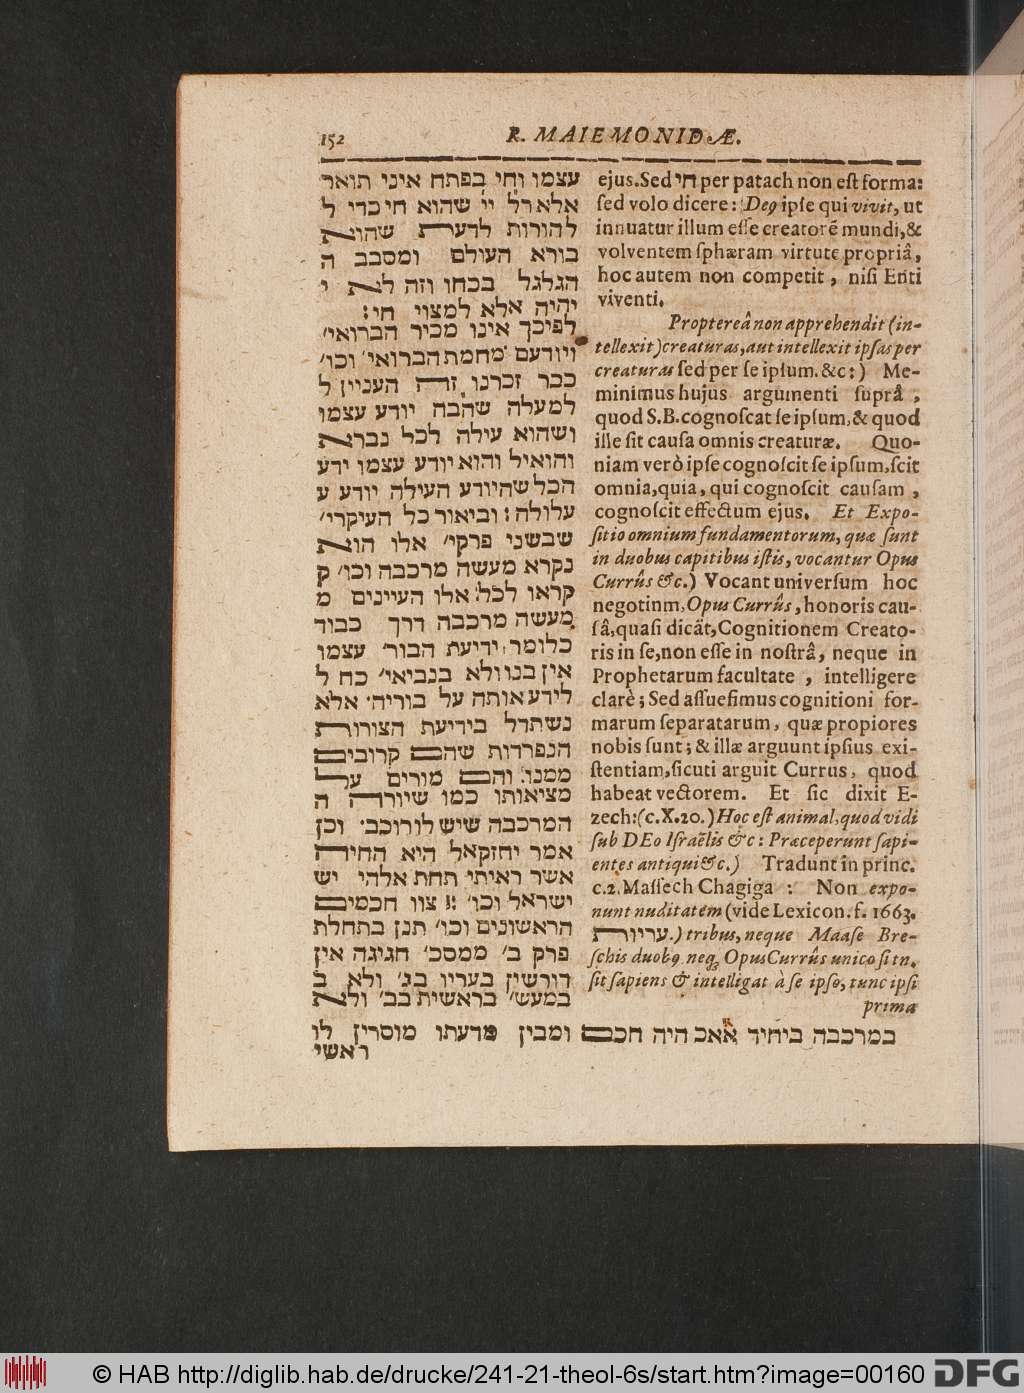 152
R. MAIEMONIDÆ.
עצמו וחי בפתח איני תואר
אלא רל יי שהוא חי כדי ל
להורות לדעת שהוא
בורא העולם ומסבב ה
הגלגל בכחו וזה לא י
יהיה אלא למצוי חי:
לפיכך אינו מכיר הברואי׳
ויודעם מחמת הברואי׳ וכו׳
ככר זכרנו זה העניין ל
למעלה שהבה יודע עצמו
ושהוא עילה לכל נברא
והואיל והוא יודע עצמו ידע
הכל שהיודע העילה יודע ע
עלולה: וביאור כל העיקרי׳
שבשני פרקי׳ אלו הוא
נקרא מעשה מרכבה וכו׳ ק
קראו לכל אלו העיינים מ
מעשה מרכבה דרך כבוד
כלומר ידיעת הבור׳ עצמו
אין בנו ולא בנביאי׳ כח ל
לידע אותה על בוריה׳ אלא
נשתדל בידיעת הצורות
הנפרדות שהם קרובים
ממנו: והם מורים על
מציאותו כמו שיורה ה
המרכבה שיש לו רוכב׳ וכן
אמר יחזקאל היא החיה
אשר ראיתי תחת אלהי יש
ישראל וכו׳ :: צוו חכמים
הראשונים וכו׳ תנן בתחלת
פרק ב׳ ממסכ׳ חגיגה אין
דורשין בעריו בג׳ ולא ב
במעש׳ בראשית בב׳ ולא
במרכבה ביחיד אאכ היה חכם ומבין מדעתו מוסרין לו
ראשי
ejus. Sed חי per patach non est forma:
sed volo dicere: Deꝰ ipse qui vivit, ut
innuatur illum esse creatorẽ mundi, &
volventem sphæram virtute propriâ,
hoc autem non competit, nisi Enti
viventi.
Proptereâ non apprehendit (in-
tellexit) creaturas, aut intellexit ipsas per
creaturas sed per se ipsum. &c:) Me-
minimus hujus argumenti suprâ,
quod S. B. cognoscat se ipsum, & quod
ille sit causa omnis creaturæ. Quo-
niam verò ipse cognoscit se ipsum, scit
omnia, quia, qui cognoscit causam,
cognoscit effectum ejus. Et Expo-
sitio omnium fundamentorum, quæ sunt
in duobus capitibus istis, vocantur Opus
Currûs &c.) Vocant universum hoc
negotinm, Opus Currûs, honoris cau-
sâ, quasi dicãt, Cognitionem Creato-
ris in se, non esse in nostrâ, neque in
Prophetarum facultate, intelligere
clarè; Sed assuefimus cognitioni for-
marum separatarum, quæ propiores
nobis sunt; & illæ arguunt ipsius exi-
stentiam, sicuti arguit Currus, quod
habeat vectorem. Et sic dixit E-
zech: (c. X. 20.) Hoc est animal, quod vidi
sub DEo Israẽlis &c: Præceperunt sapi-
entes antiqui &c.) Tradunt in princ.
c. 2. Massech Chagiga: Non expo-
nunt nuditatem (vide Lexicon. f. 1663.
עריות.) tribus, neque Maase Bre-
schis duobꝰ neqꝫ Opus Currûs unico si tn.
sit sapiens & intelligat à se ipso, tunc ipsi
prima
© HAB http://diglib.hab.de/drucke/241-21-theol-6s/start.htm?image=00160
DFG